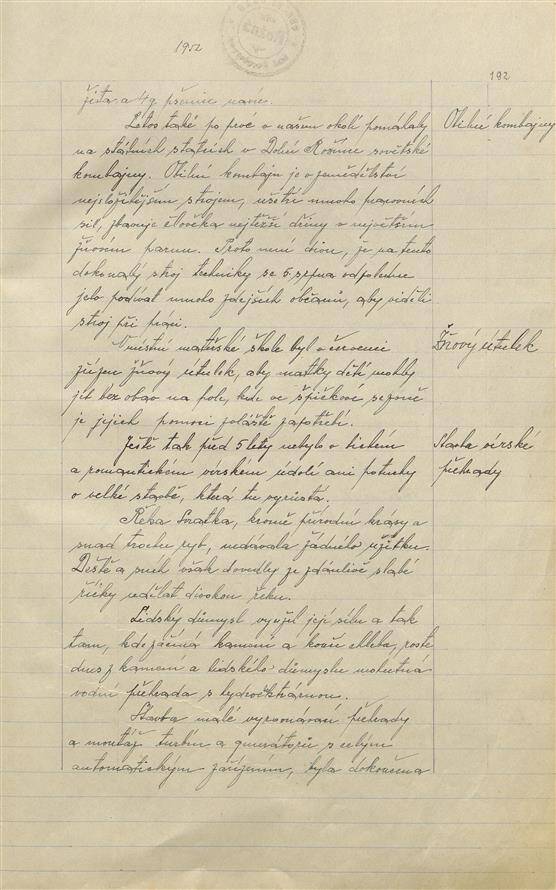 1952
192
žita a 4 q pšenice navíc.
Letos také po prvé v našem okolí pomáhaly
Obilní kombajny
na státních statcích v Dolní Rožínce sovětské
kombajny. Obilní kombajn je v zemědělství
nejsložitějším strojem, ušetří mnoho pracovních
sil, zbavuje člověka nejtěžší dřiny v největším
žňovém parnu. Proto není divu, že na tento
dokonalý stroj techniky se 5. srpna odpoledne
jelo podívat mnoho zdejších občanů, aby viděli
stroj při práci.
V místní mateřské škole byl v červenci
Žňový útulek
zřízen žňový útulek, aby matky dětí mohly
jít bez obav na pole, kde ve špičkové sezoně
je jejich pomoci zvláště zapotřebí.
Ještě tak před 5 lety nebylo v tichém
Stavba vírské
a romantickém vírském údolí ani potuchy
přehrady
o velké stavbě, která tu vyrůstá.
Řeka Svratka, kromě přírodní krásy a
snad trochu ryb, nedávala žádného užitku.
Deště a sníh však dovedly ze zdánlivě slabé
říčky udělat divokou řeku.
Lidský důmysl využil její sílu a tak
tam, kde začíná kamení a končí chleba, roste
dnes z kamení a lidského důmyslu mohutná
vodní přehrada s hydroelektrárnou.
Stavba malé vyrovnávací přehrady
a montáž turbin a generátorů s celým
automatickým zařízením, byla dokončena